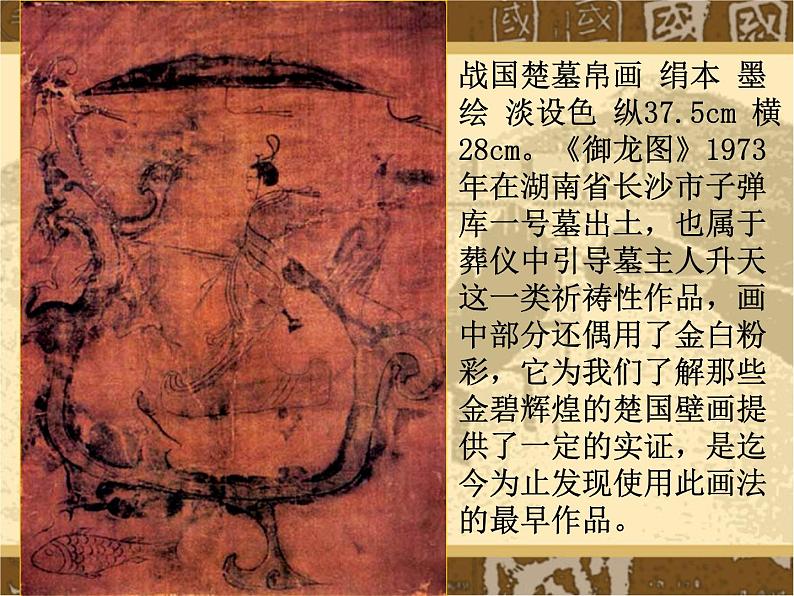 國 國 國 國
战国楚墓帛画 绢本 墨
绘 淡设色 纵37.5cm 横
28cm。《御龙图》1973
年在湖南省长沙市子弹
库一号墓出土，也属于
葬仪中引导墓主人升天
这一类祈祷性作品，画
中部分还偶用了金白粉
彩，它为我们了解那些
金碧辉煌的楚国壁画提
供了一定的实证，是迄
今为止发现使用此画法
的最早作品。